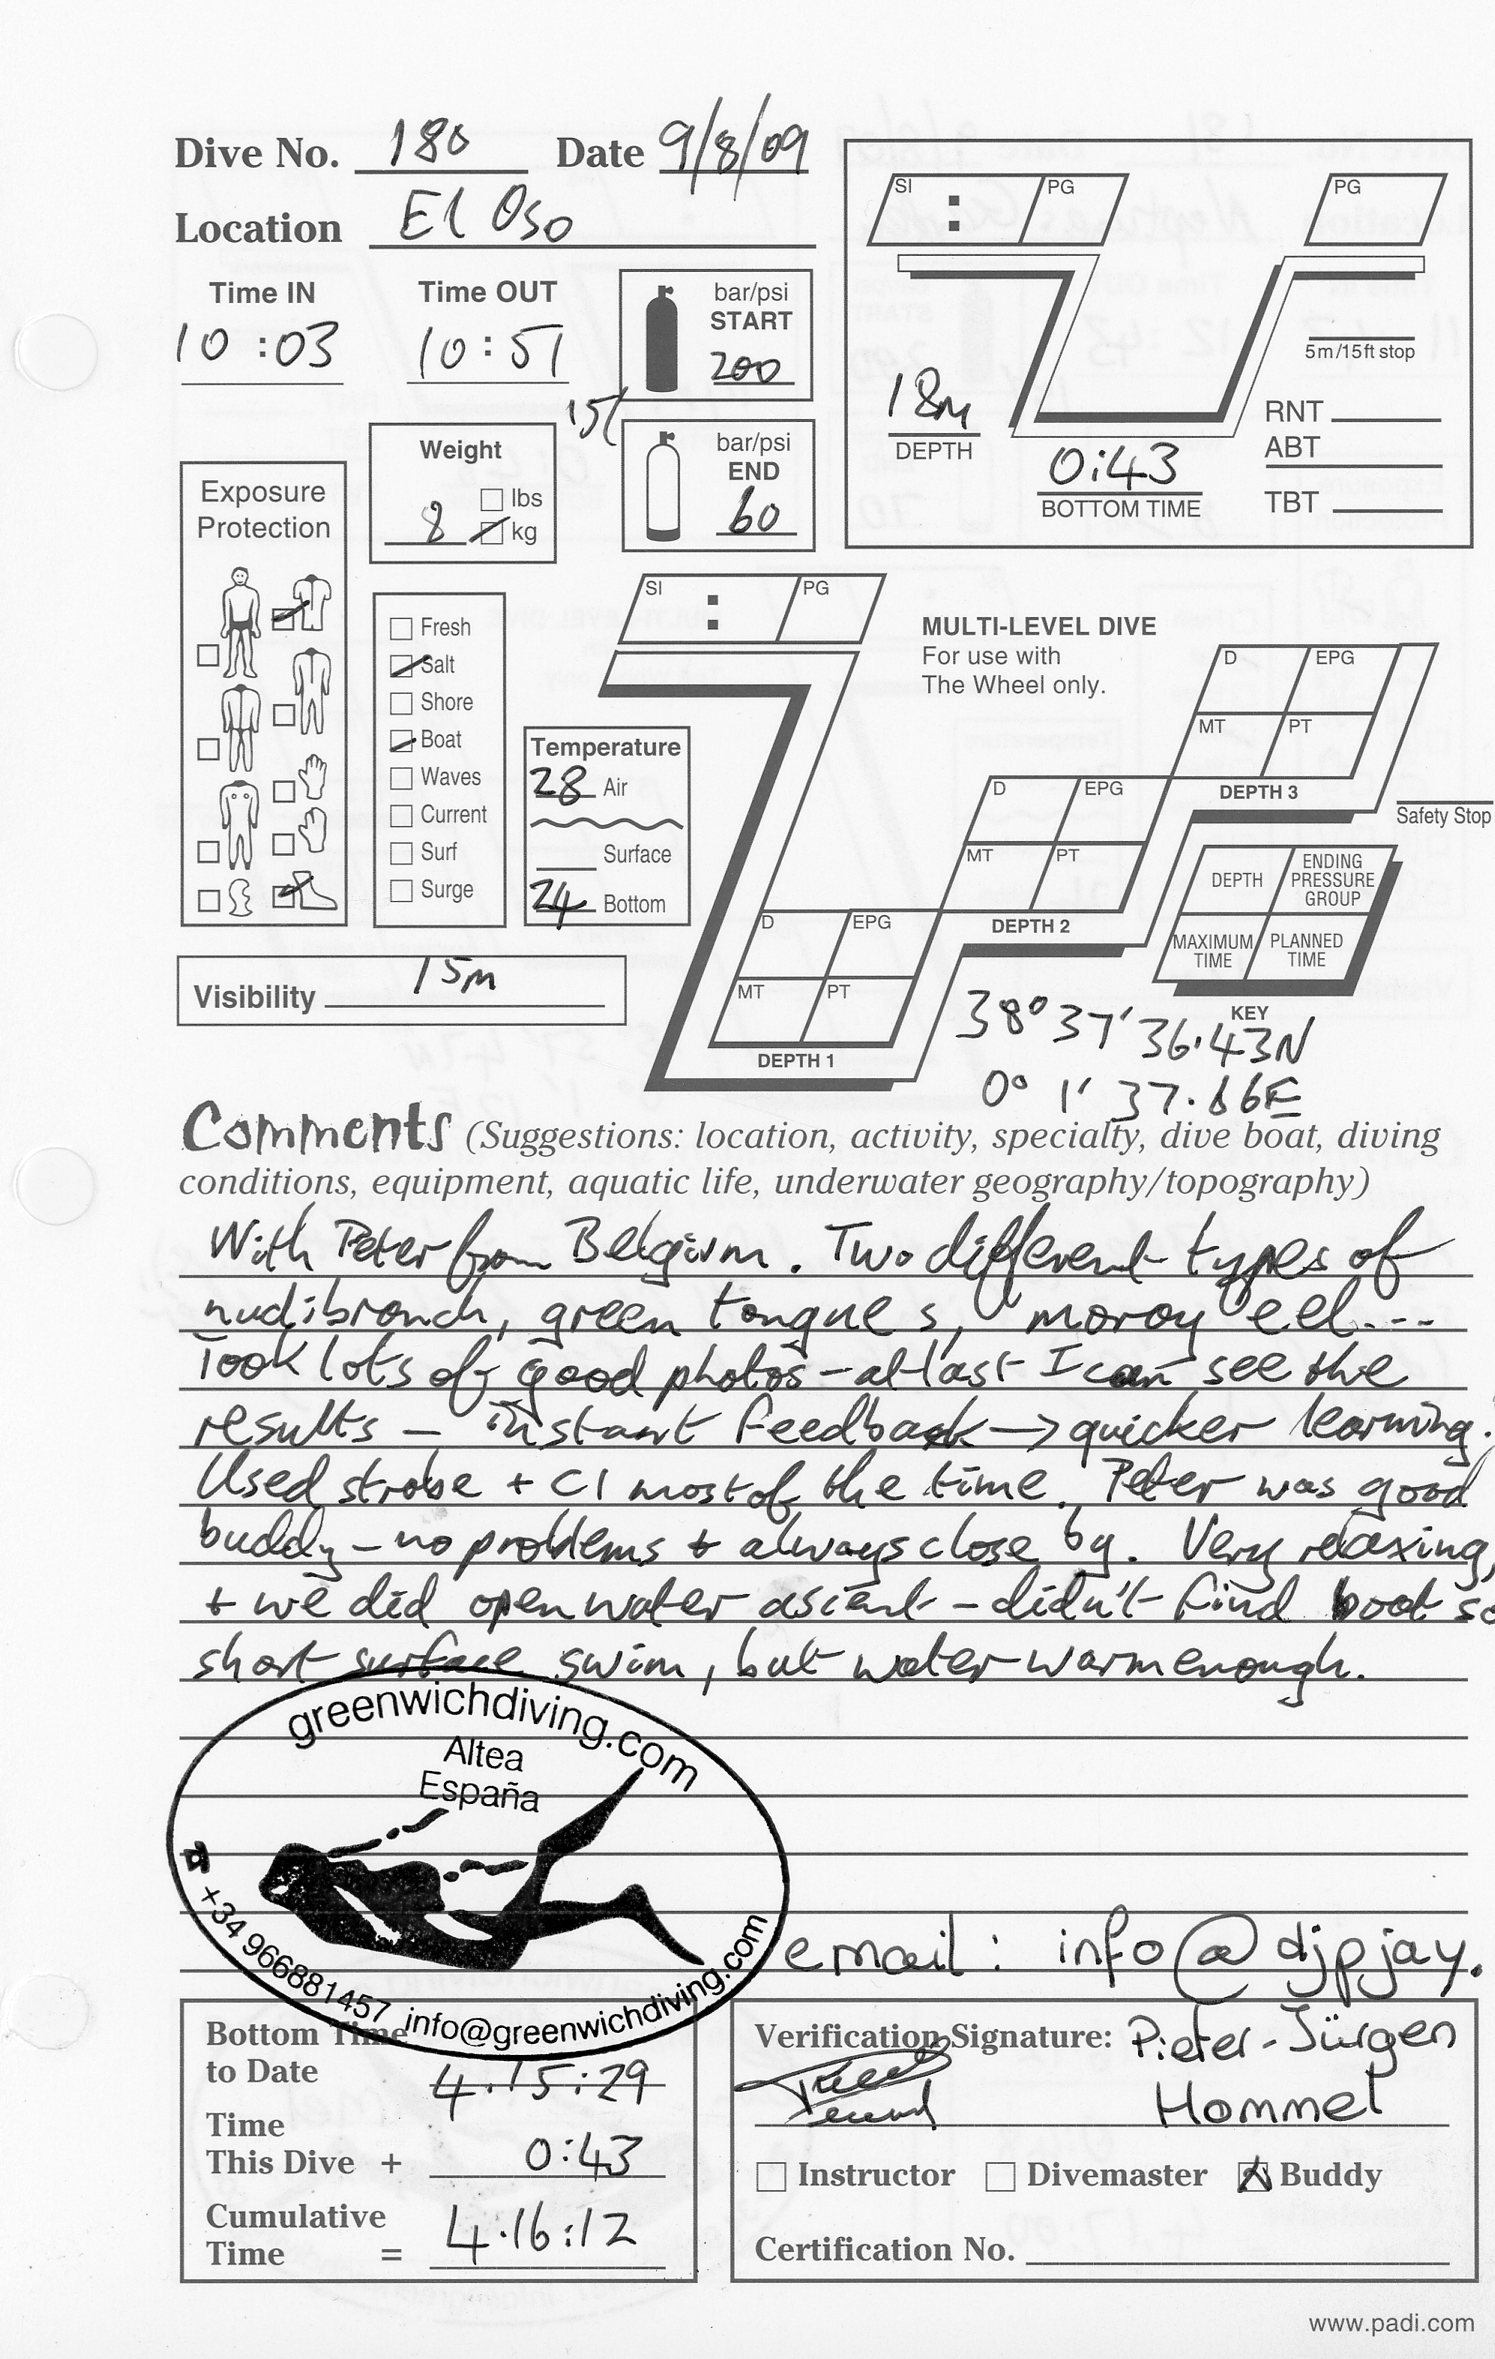 Dive No. 180 Date 9/8/09
Location El Oso
Time IN Time OUT
10:03 10:51
bar/psi
START
200
15l
bar/psi
END
60
Weight
lbs
8 kg
SI : PG PG
5m/15ft stop
18m
DEPTH
0:43
BOTTOM TIME
RNT
ABT
TBT
Exposure
Protection
Fresh
Salt
Shore
Boat
Waves
Current
Surf
Surge
Temperature
28 Air
Surface
24 Bottom
Visibility 15m
SI : PG
MULTI-LEVEL DIVE
For use with
The Wheel only.
D EPG
MT PT
DEPTH 3
Safety Stop
D EPG
MT PT
DEPTH 2
D EPG
MT PT
DEPTH 1
DEPTH ENDING PRESSURE GROUP
MAXIMUM TIME PLANNED TIME
KEY
38° 37' 36.43N
0° 1' 37.66E
Comments (Suggestions: location, activity, specialty, dive boat, diving
conditions, equipment, aquatic life, underwater geography/topography)
With Peter from Belgium. Two different types of
nudibranch, green tongues, moray eel...
Took lots of good photos - at last I can see the
results - instant feedback -> quicker learning!
Used strobe + C1 most of the time. Peter was good
buddy - no problems + always close by. Very relaxing,
+ we did open water ascent - didn't find boat so
short surface swim, but water warm enough.
greenwichdiving.com
Altea
España
+34 966881457 info@greenwichdiving.com
email: info@djpjay.
Bottom Time
to Date 4.15:29
Time
This Dive + 0:43
Cumulative
Time = 4.16:12
Verification Signature: Pieter-Jürgen
Hommel
Instructor Divemaster Buddy
Certification No.
www.padi.com